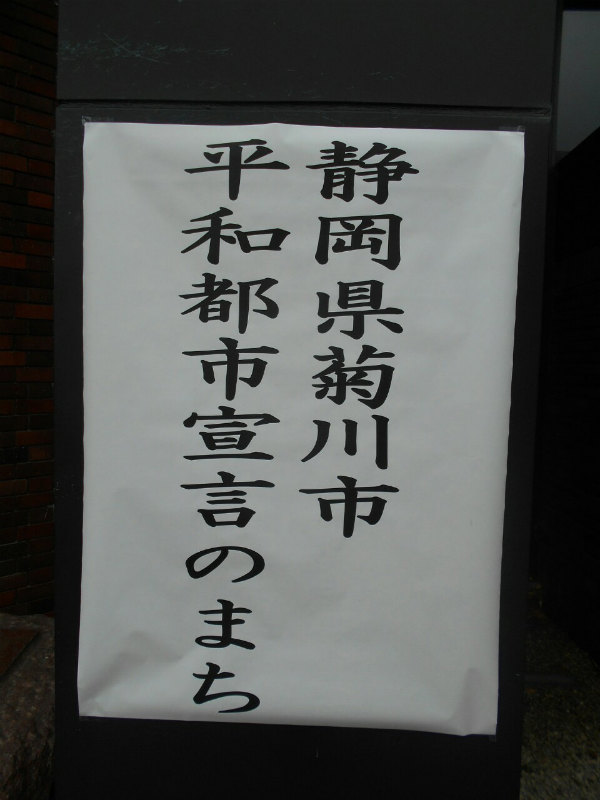 静岡県菊川市
平和都市宣言のまち